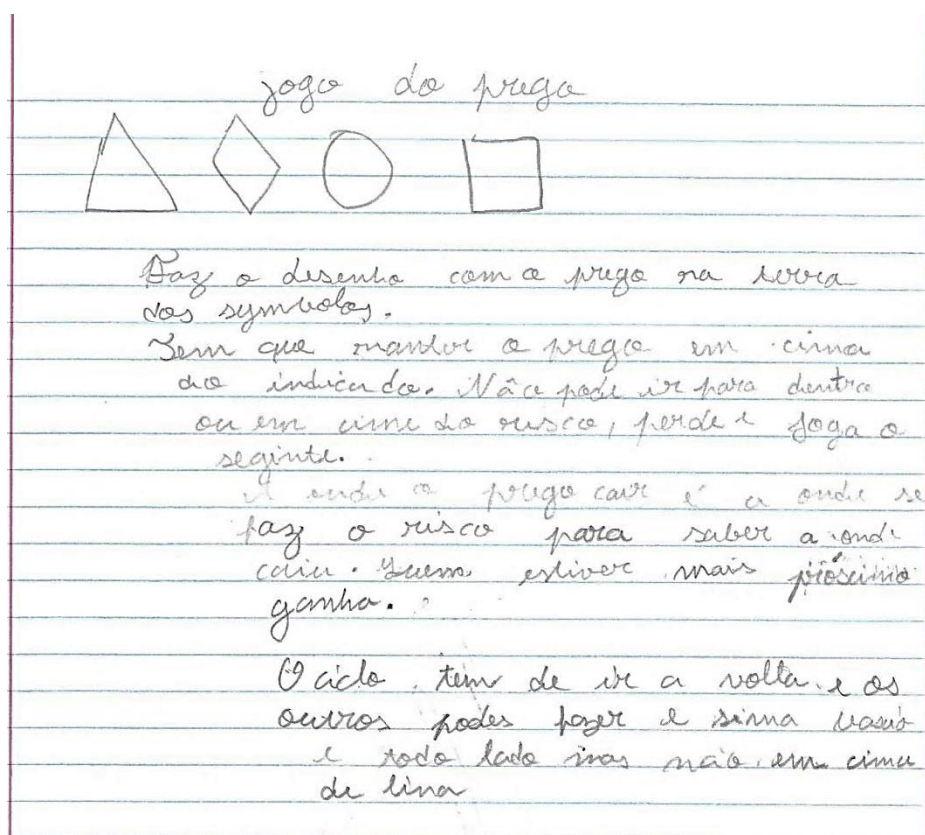 jogo do prego
Faz o desenho com o prego na terra
dos symbolos.
Tem que mandor o prego em cima
do indicado. Não pode ir para dentro
ou em cime do risco, perde e joga o
seginte.
A onde o prego cair é a onde se
faz o risco para saber a onde
caiu. Quem estiver mais próscimo
ganha.
O ciclo tem de ir a volta e os
outros podes fazer e sima
e todo lado mas não em cima
de lina